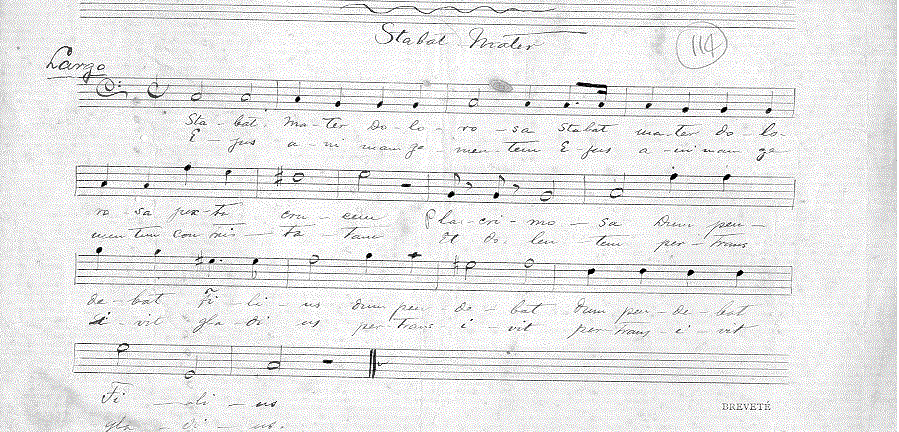 Stabat Mater
114
Largo
Sta - bat Ma - ter Do - lo - ro - sa Stabat ma - ter do - lo -
E - jus a - ni mam ge - men - tem E - jus a - ni mam ge
ro - sa jux - ta cru - cem lacri - mo - sa Dum pen -
mentem con tris - ta - tam Et do - len - tem per - trans
de - bat Fi - li - us dum pen - de - bat dum pen - de - bat
i - vit gla - di us per trans - i - vit per trans - i - vit
Fi - li - us
gla - di - us.
BREVETÉ